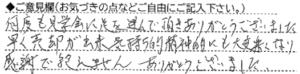 ◆ご意見欄(お気づきの点などご自由にご記入下さい。)
何度も見学会に足を運んで頂きありがとうございました
早く売却が出来、経済的精神的にも大変楽になり
感謝で絶えません ありがとうございました